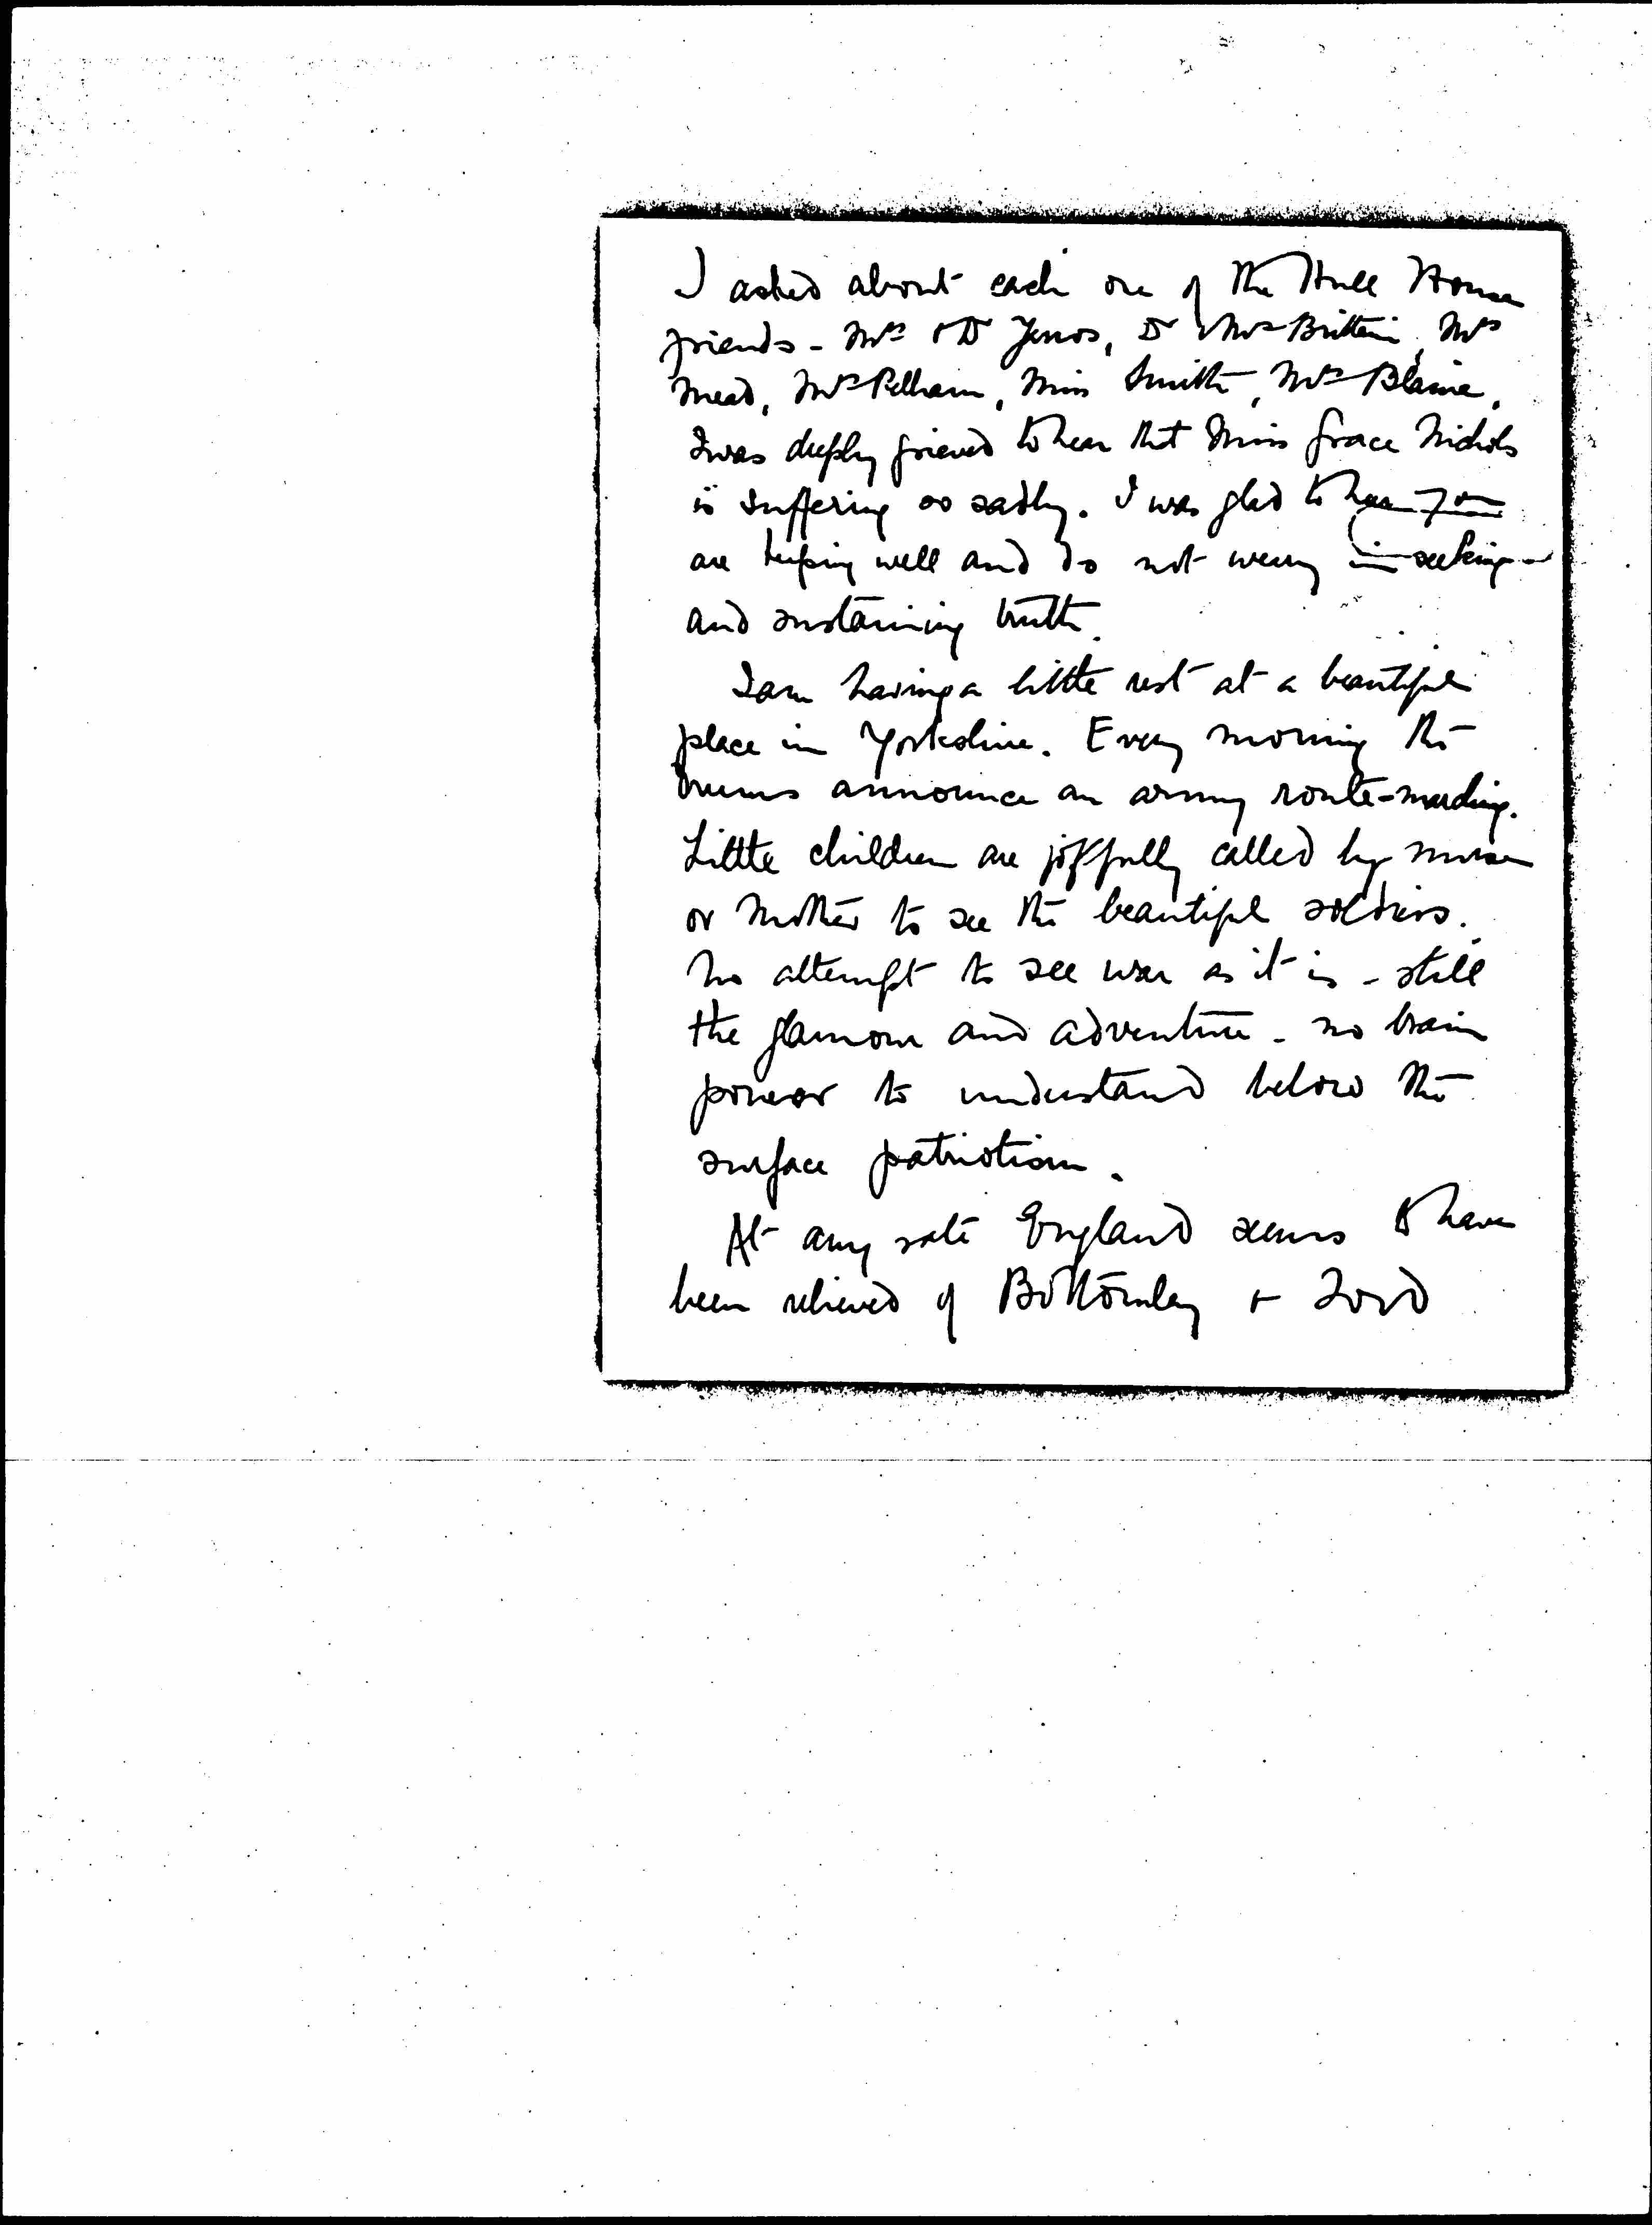 I asked about each one of the Hull House
friends - Mrs & Dr Yarros, Dr & Mrs Brittain, Mrs
Mead, Mrs Pelham, Miss Smith, Mrs Blaine.
I was deeply grieved to hear that Miss Grace Nichols
is suffering so sadly. I was glad to hear you
are keeping well and do not weary in seeking
and sustaining truth.
I am having a little rest at a beautiful
place in Yorkshire. Every morning the
drums announce an army route-marching.
Little children are joyfully called by nurse
or mother to see the beautiful soldiers.
No attempt to see war as it is - still
the glamour and adventure - no brain
power to understand below the
surface patriotism.
At any rate England seems to have
been relieved of Bottomley & Lord